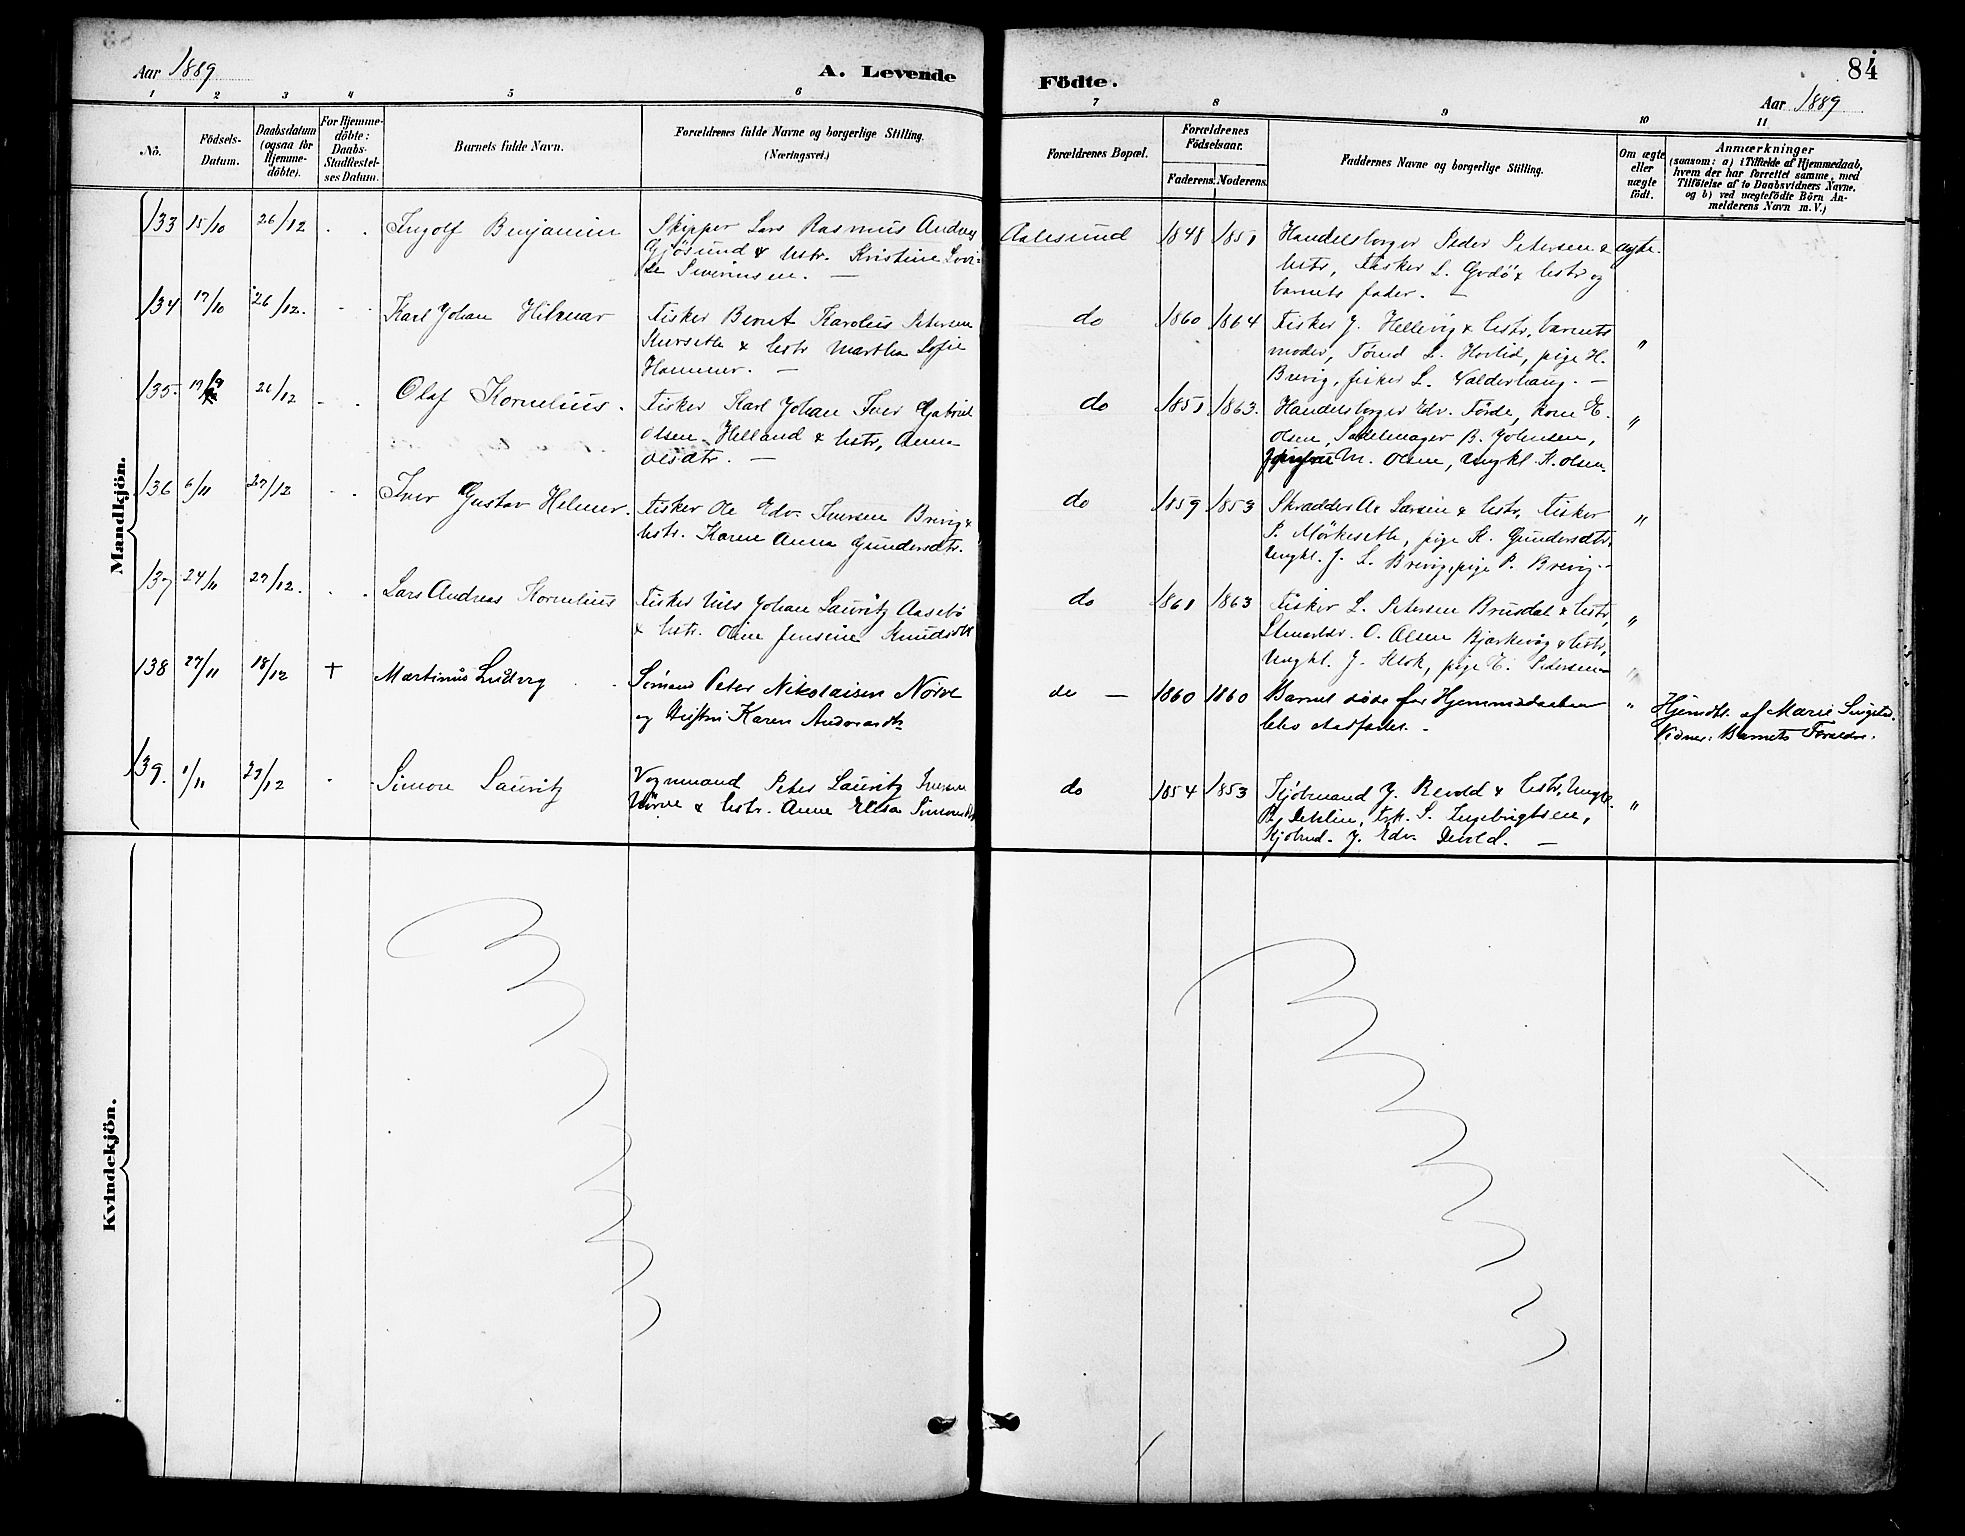 Aar 1889
A. Levende
Födte.
84
Aar 1889
1 2 3 4 5 6 7 8 9 10 11
No.
Födsels-
Datum.
Daabsdatum
(ogsaa for
Hjemme-
döbte).
For Hjemme-
döbte:
Daabs-
Stadfæstel-
ses Datum.
Barnets fulde Navn.
Forældrenes fulde Navne og borgerlige Stilling.
(Næringsvei.)
Forældrenes Bopæl.
Forældrenes
Födselsaar.
Faderens. Moderens.
Faddernes Navne og borgerlige Stilling.
Om ægte
eller
uægte
födt.
Anmærkninger
(saasom: a) i Tilfælde af Hjemmedaab,
hvem der har forrettet samme, med
Tilföielse af to Daabsvidners Navne,
og b) ved uægtefödte Börn An-
melderens Navn m. V.)
Mandkjön.
133 15/10 26/12 - - Ingolf Benjamin
Skipper Lars Rasmus Andreas
Gjösund & hstr. Kristine Lovi-
se Sverinsen. —
Aalesund 1848 1851
Handelsborger Peder Petersen &
hstr, Fisker L. Godö & hstr og
barnets fader. —
ægte.
134 17/10 26/12. - - Karl Johan Hilmar
Fisker Bernt Karolius Petersen
& hstr Martha Sofie
Hammer. —
do 1860 1864
Fisker J. Hellevig & hstr, barnets
moder, Tömd L. Hovlid, pige H.
Brevig, fisker L. Valderhaug. —
"
135. 26/12 - - Olaf Kornelius.
Fisker Karl Johan Iver Gabriel
Olsen Helland & hstr, Anna
Olsdtr. —
do 1851 1863.
Handelsborger Edv. Förde, kone E.
Olsen, Sadelmager B. Johnsen,
M. Olsen, Ungkl K. Olsen
"
136 6/11 27/12 - - Iver Gustav Helmer.
Fisker Ole Edv. Iversen Brevig &
hstr. Karen Anna Gundersdtr.
do 1859 1853
Skrædder A. Larsen & hstr, Fisker
P. Mörkeseth, pige K. Gundersdtr,
Ungkl. J. L. Brevig, pige P. Brevig. -
"
137 24/11 27/12. - - Lars Andreas Kornelius
Fisker Nils Johan Lauritz Aasebö
& hstr. Oline Jensine Knudsdtr
do 1861 1863
Fisker L. Petersen Brusdal & hstr,
O. Olsen Bjørkevåg & hstr,
Ungkl. J. Klok, pige E. Pedersen
"
138 27/11 18/12 + Martinus Ludvig -
Sömand Peter Nikolaisen Nörve
og Hustru Karen Andersdtr
do — 1860 1860
Barnet döde för Hjemmedaaben
blev stadfæstet. -
"
Hjemdbt. af Marie
Vidner: Barnets Forældre.
139. 1/11 27/12 - - Simon Lauritz
Vognmand Peter Lauritz Iversen
Nörve & hstr. Anne Elisa Simonsdtr
do 1854 1853
Kjöbmand J. Devold & hstr, Ungkl.
P. Dehlin, frk. S. Ingebrigtsen,
Kjöbmd. J. Edv. Devold. —
"
Kvindekjön.